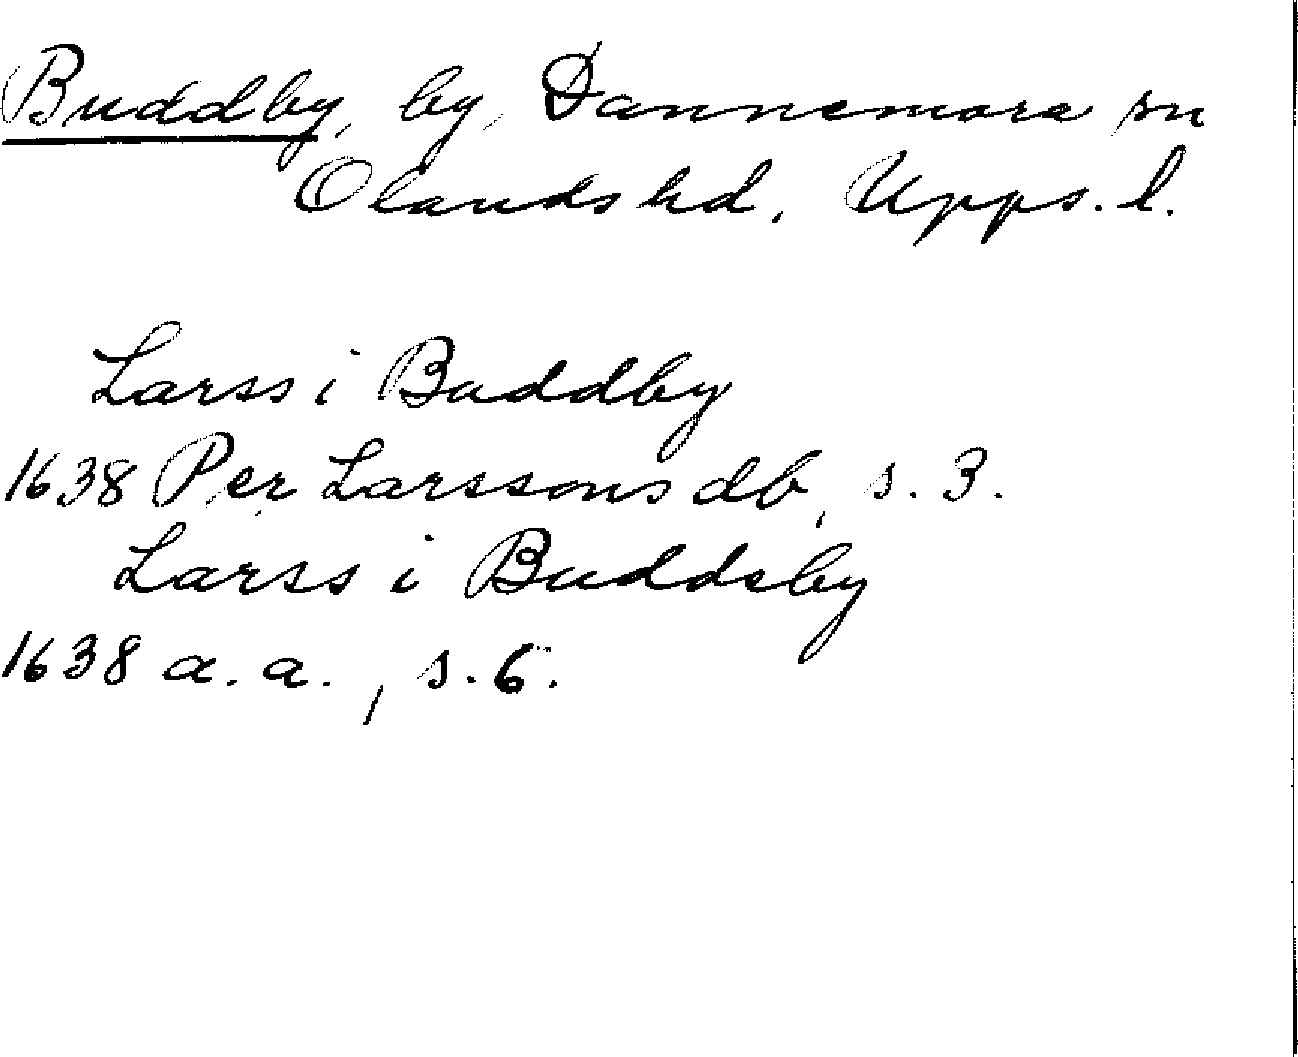 Buddby, by, Dannemora sn
Olands hd, Upps. l.
Larss i Buddby
1638 Per Larssons db, s. 3.
Larss i Buddsby
1638 a. a., s. 6.